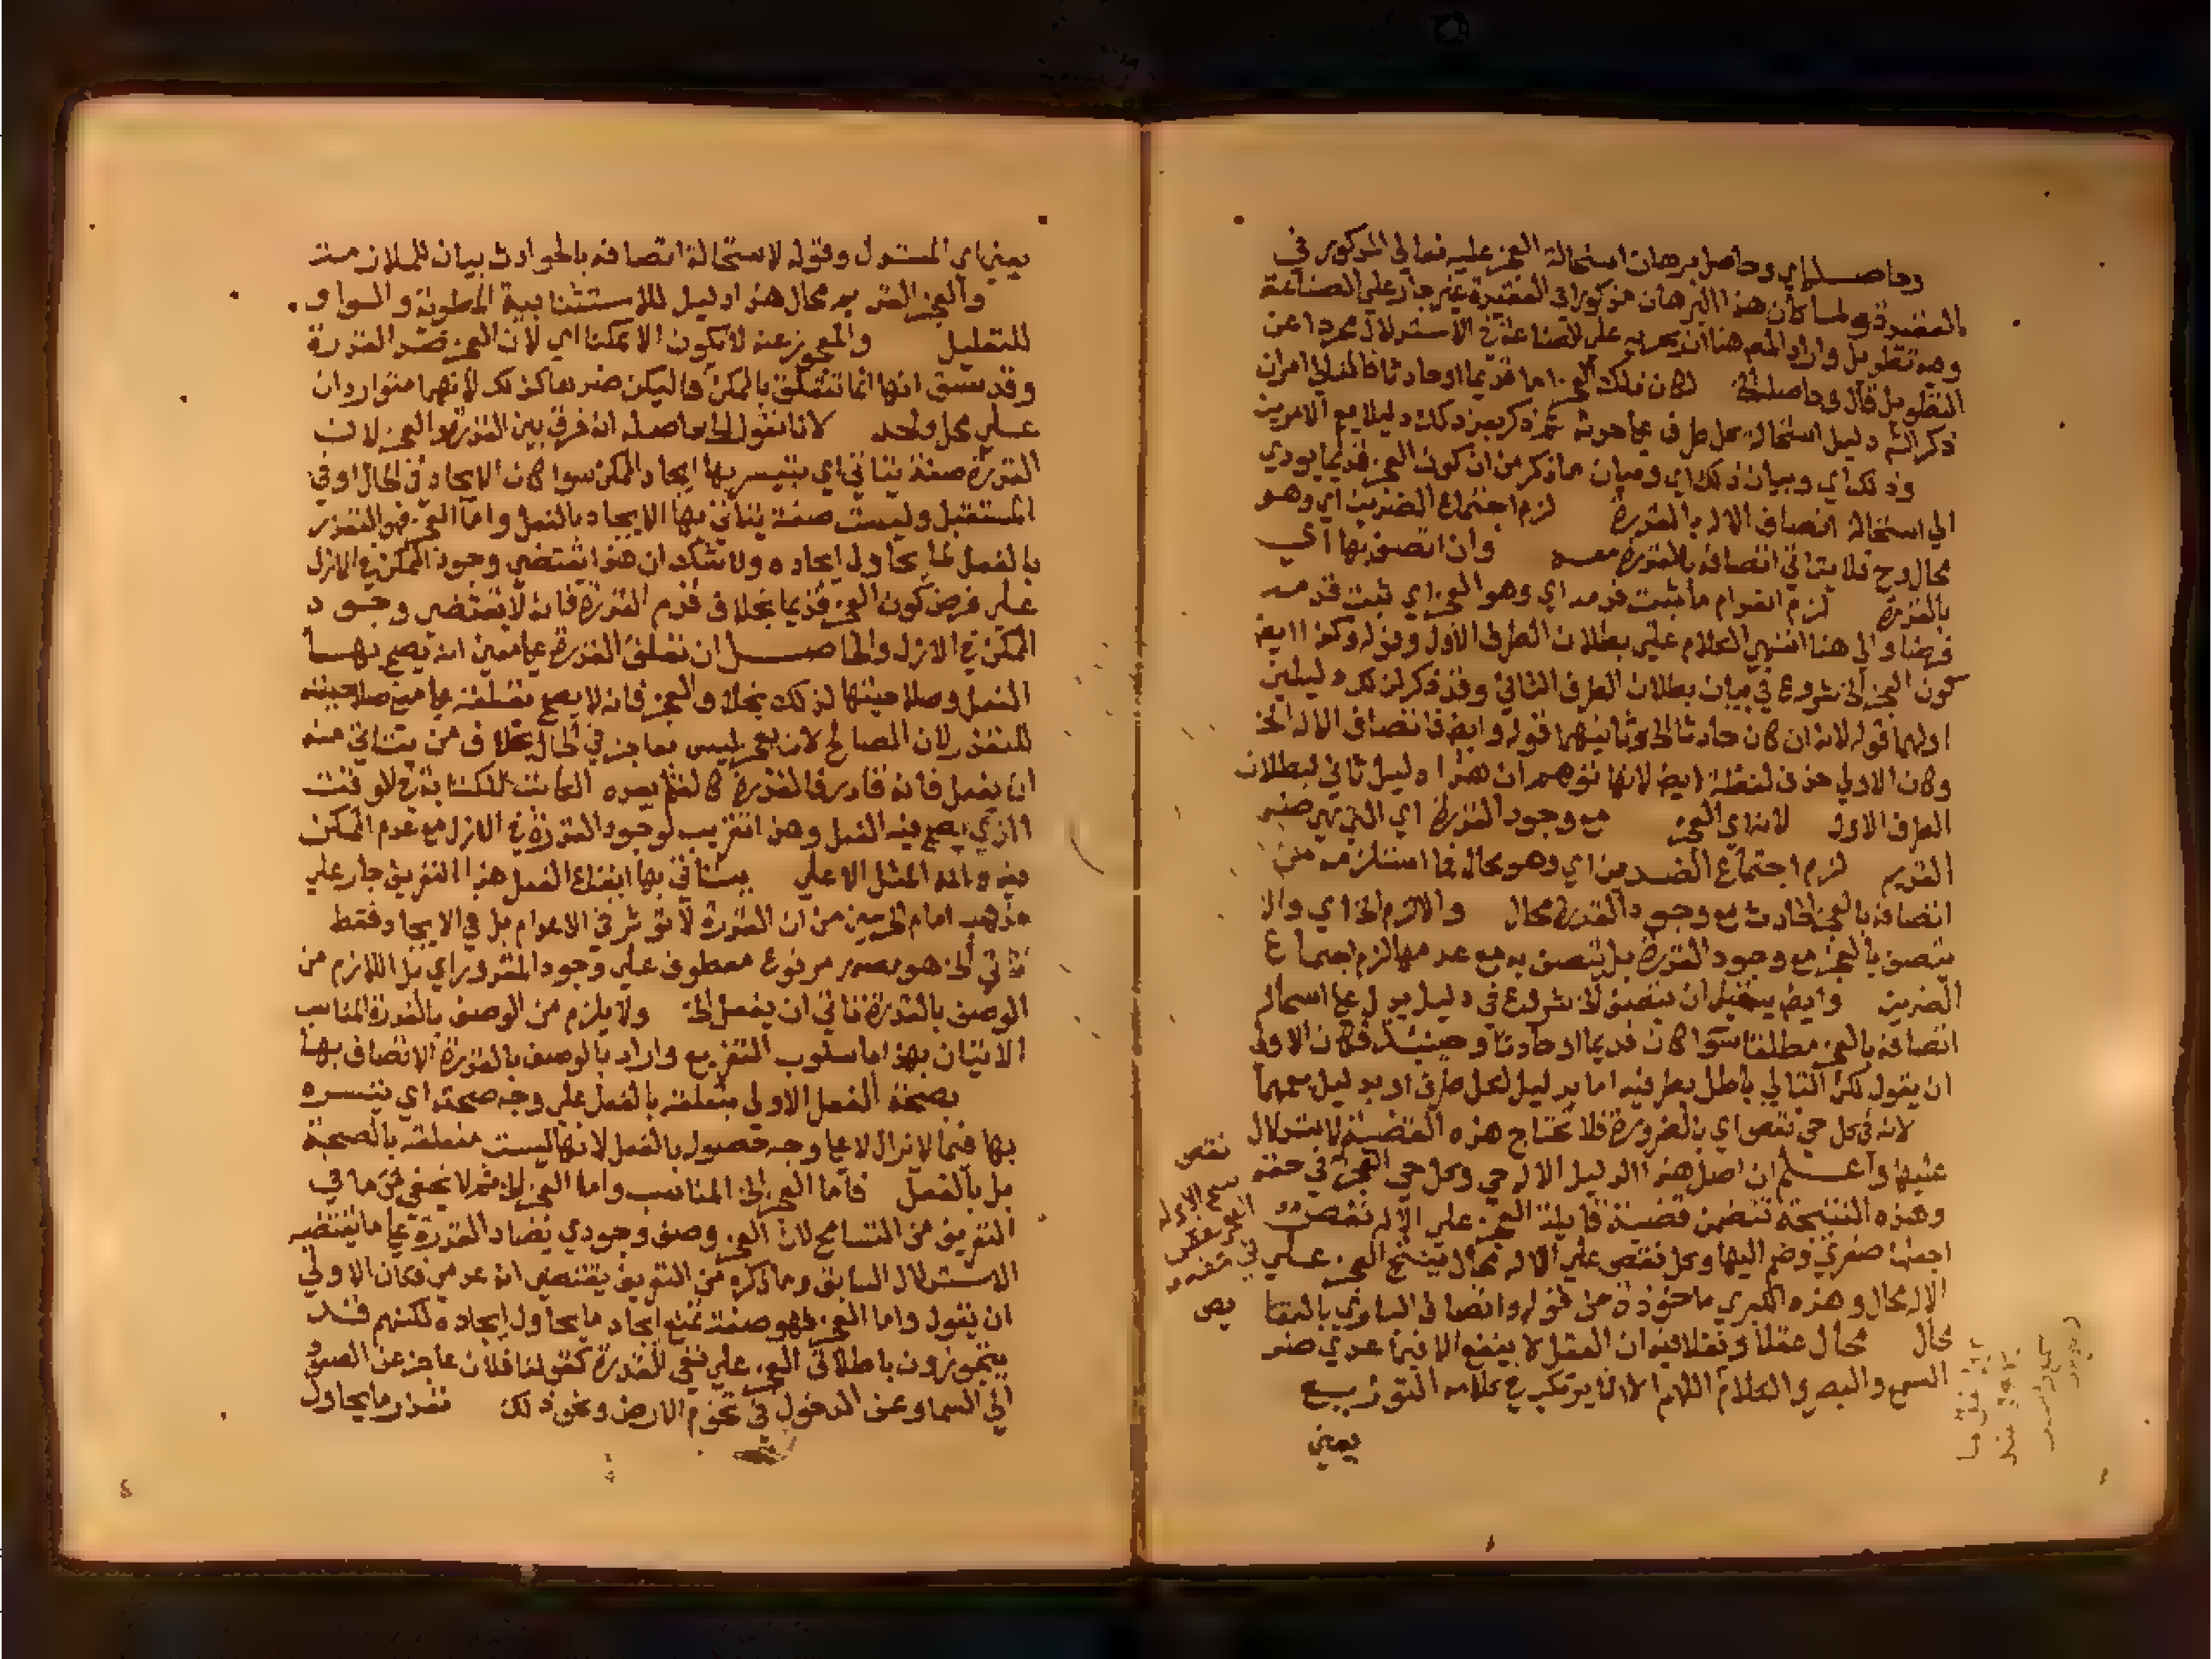 وحاصله اي وحاصل برهان استحالة العجز عليه تعالى المذكور في
العقيدة ولما كان هذا البرهان مذكورا في العقيدة غير جار على الصناعة
وهو تطويل واراد المص هنا ان يجريه على الصناعة في الاستدلال مجردا عن
التطويل قال وحاصله الخ لكان ذلك العجز اما قديما او حادثا فالتالي امران
ذكر الشم دليل استحالة كل طرف على حدته ثم ذكر بعد ذلك دليلا مع الامرين
وذلك اي وبيان ذلك اي وبيان ما ذكر من ان كون العجز قديما يودي
الي استحالة اتصاف الاله بالقدرة لزم اجتماع الضدين اي وهو
محال وح فلا يتاتي اتصافه بالقدرة معه وان اتصف بها اي
بالقدرة لزم انعدام ما ثبت قدمه اي وهو العجز اي ثبت قدمه
فرضا والي هنا انتهي الكلام علي بطلان الطرف الاول وقوله وكذا ايض
كون العجز الخ شروع في بيان بطلان الطرف الثاني وقد ذكر لذلك دليلين
اولهما قوله لانه ان كان حادثا الخ وثانيهما قوله وايض فاتصاف الاله الخ
وكان الاولي حذف لفظة ايض لانها توهم ان هذا دليل ثاني لبطلان
الطرف الاول لانه اي العجز مع وجود القدرة اي التي هي ضده
القديم لزم اجتماع الضدين اي وهو محال فما استلزمه من
اتصافه بالعجز الحادث مع وجود القدرة محال والا لزم الخ اي والا
يتصف بالعجز مع وجود القدرة بل يتصف به مع عدمها لزم اجتماع
الضدين وايض يستحيل ان يتصف الخ شروع في دليل يدل على استحالة
اتصافه بالعجز مطلقا سوا كان قديما او حادثا وحينئذ فكان الاولي
ان يقول لكن التالي باطل بطرفيه اما بدليل لكل طرف او بدليل يعمهما
لانه في كل حي نقص اي بالضرورة فلا تحتاج هذه القضية لاستدلال
عليها واعلم ان اصل هذا الدليل الاله حي وكل حي العجز في حقه نقص
وهذه النتيجة تتضمن قضية قايلة العجز علي الاله نقص
اجعلها صغري وضم اليها وكل نقص علي الاله محال ينتج العجز علي
الاله محال وهذه الكبري ماخوذة من قوله واتصاف الباري بالنقا
يص
محال محال عقلا ونقلا فيه ان العقل لا ينفع الا فيما عدي ضد
السمع والبصر والكلام اللهم الا ان يرتكب في كلامه التوزيع
يعني
يعني اي المستدل وقوله لاستحالة اتصافه بالحوادث بيان للملازمة
والعجز القديم محال هذا دليل للاستثنائية المطوية والواو
للتعليل والمعجوز عنه لا يكون الا ممكنا اي لان العجز ضد القدرة
وقد سبق انها انما تتعلق بالممكن فليكن ضدها كذلك لانهما متواردان
علي محل واحد لانا نقول الخ حاصله انه فرق بين القدرة والعجز لان
القدرة صفة يتاتي اي يتيسر بها ايجاد الممكن سوا كان الايجاد في الحال او في
المستقبل وليست صفة يتاتي بها الايجاد بالفعل واما العجز فهو التعذر
بالفعل لما يحاول ايجاده ولا شك ان هذا يقتضي وجود الممكن في الازل
علي فرض كون العجز قديما بخلاف قدم القدرة فانه لا يقتضي وجود
الممكن في الازل والحاصل ان تعلق القدرة على معني انه يصح بها
الفعل وصلاحيتها لذلك بخلاف العجز فانه لا يصح تعلقه على معني صلاحيته
للتعذر لان الصالح لان يعجز ليس بعاجز في الحال بخلاف من يتاتي منه
ان يفعل فانه قادر فالقدرة كالقلم بيده الكاتب للكتابة في الوقت
الذي يصح فيه الفعل وهذا تقريب لوجود القدرة في الازل مع عدم الممكن
فيه ولله المثل الاعلي يتاتي بها ايقاع الفعل هذا التعريف جار علي
مذهب امام الحرمين من ان القدرة لا تؤثر في الاعدام بل في الايجاد فقط
تاتي الخ هو مصدر مرفوع معطوف علي وجود المقدور اي بل اللازم من
الوصف بالقدرة تاتي ان يفعل الخ ولا يلزم من الوصف بالقدرة المناسب
الاتيان بهذا باسلوب التفريع واراد بالوصف بالقدرة الاتصاف بها
بصحة الفعل الاولي متعلقه بالفعل علي وجه صحته اي تيسره
بها فيما لا يزال لا على وجه حصوله بالفعل لانها ليست متعلقه بالصحة
بل بالفعل فاما العجز الخ المناسب واما العجز الخ ثم لا يخفي ما في
التعريف من التسامح لان العجز وصف وجودي يضاد القدرة على ما يقتضيه
الاستدلال السابق وما ذكره من التعريف يقتضي انه عدمي فكان الاولي
ان يقول واما العجز فهو صفة تمنع ايجاد ما يحاول ايجاده لكنهم قد
يتجوزون باطلاق العجز علي نفي القدرة كقولنا فلان عاجز عن الصعود
الي السما وعن الدخول في تخوم الارض ونحو ذلك تعذر ما يحاول